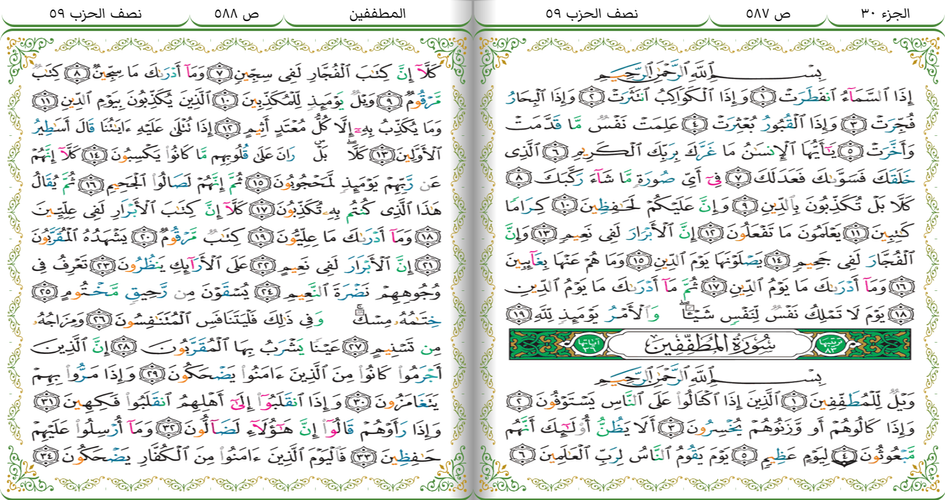 الجزء ٣٠
ص ٥٨٧
نصف الحزب ٥٩
بِسْمِ ٱللَّهِ ٱلرَّحْمَٰنِ ٱلرَّحِيمِ
إِذَا ٱلسَّمَآءُ ٱنفَطَرَتْ ١ وَإِذَا ٱلْكَوَاكِبُ ٱنتَثَرَتْ ٢ وَإِذَا ٱلْبِحَارُ
فُجِّرَتْ ٣ وَإِذَا ٱلْقُبُورُ بُعْثِرَتْ ٤ عَلِمَتْ نَفْسٌ مَّا قَدَّمَتْ
وَأَخَّرَتْ ٥ يَٰٓأَيُّهَا ٱلْإِنسَٰنُ مَا غَرَّكَ بِرَبِّكَ ٱلْكَرِيمِ ٦ ٱلَّذِى
خَلَقَكَ فَسَوَّىٰكَ فَعَدَلَكَ ٧ فِىٓ أَىِّ صُورَةٍ مَّا شَآءَ رَكَّبَكَ ٨
كَلَّا بَلْ تُكَذِّبُونَ بِٱلدِّينِ ٩ وَإِنَّ عَلَيْكُمْ لَحَٰفِظِينَ ١٠ كِرَامًا
كَٰتِبِينَ ١١ يَعْلَمُونَ مَا تَفْعَلُونَ ١٢ إِنَّ ٱلْأَبْرَارَ لَفِى نَعِيمٍ ١٣ وَإِنَّ
ٱلْفُجَّارَ لَفِى جَحِيمٍ ١٤ يَصْلَوْنَهَا يَوْمَ ٱلدِّينِ ١٥ وَمَا هُمْ عَنْهَا بِغَآئِبِينَ
١٦ وَمَآ أَدْرَىٰكَ مَا يَوْمُ ٱلدِّينِ ١٧ ثُمَّ مَآ أَدْرَىٰكَ مَا يَوْمُ ٱلدِّينِ
١٨ يَوْمَ لَا تَمْلِكُ نَفْسٌ لِّنَفْسٍ شَيْـًٔا ۖ وَٱلْأَمْرُ يَوْمَئِذٍ لِّلَّهِ ١٩
ترتيبها ٨٣ سُورَةُ المُطَفِّفِينَ آياتها ٣٦
بِسْمِ ٱللَّهِ ٱلرَّحْمَٰنِ ٱلرَّحِيمِ
وَيْلٌ لِّلْمُطَفِّفِينَ ١ ٱلَّذِينَ إِذَا ٱكْتَالُوا۟ عَلَى ٱلنَّاسِ يَسْتَوْفُونَ ٢
وَإِذَا كَالُوهُمْ أَو وَّزَنُوهُمْ يُخْسِرُونَ ٣ أَلَا يَظُنُّ أُو۟لَٰٓئِكَ أَنَّهُم
مَّبْعُوثُونَ ٤ لِيَوْمٍ عَظِيمٍ ٥ يَوْمَ يَقُومُ ٱلنَّاسُ لِرَبِّ ٱلْعَٰلَمِينَ ٦
نصف الحزب ٥٩
ص ٥٨٨
المطففين
كَلَّآ إِنَّ كِتَٰبَ ٱلْفُجَّارِ لَفِى سِجِّينٍ ٧ وَمَآ أَدْرَىٰكَ مَا سِجِّينٌ ٨ كِتَٰبٌ
مَّرْقُومٌ ٩ وَيْلٌ يَوْمَئِذٍ لِّلْمُكَذِّبِينَ ١٠ ٱلَّذِينَ يُكَذِّبُونَ بِيَوْمِ ٱلدِّينِ ١١
وَمَا يُكَذِّبُ بِهِۦٓ إِلَّا كُلُّ مُعْتَدٍ أَثِيمٍ ١٢ إِذَا تُتْلَىٰ عَلَيْهِ ءَايَٰتُنَا قَالَ أَسَٰطِيرُ
ٱلْأَوَّلِينَ ١٣ كَلَّا ۖ بَلْ ۜ رَانَ عَلَىٰ قُلُوبِهِم مَّا كَانُوا۟ يَكْسِبُونَ ١٤ كَلَّآ إِنَّهُمْ
عَن رَّبِّهِمْ يَوْمَئِذٍ لَّمَحْجُوبُونَ ١٥ ثُمَّ إِنَّهُمْ لَصَالُوا۟ ٱلْجَحِيمِ ١٦ ثُمَّ يُقَالُ
هَٰذَا ٱلَّذِى كُنتُم بِهِۦ تُكَذِّبُونَ ١٧ كَلَّآ إِنَّ كِتَٰبَ ٱلْأَبْرَارِ لَفِى عِلِّيِّينَ
١٨ وَمَآ أَدْرَىٰكَ مَا عِلِّيُّونَ ١٩ كِتَٰبٌ مَّرْقُومٌ ٢٠ يَشْهَدُهُ ٱلْمُقَرَّبُونَ
٢١ إِنَّ ٱلْأَبْرَارَ لَفِى نَعِيمٍ ٢٢ عَلَى ٱلْأَرَآئِكِ يَنظُرُونَ ٢٣ تَعْرِفُ فِى
وُجُوهِهِمْ نَضْرَةَ ٱلنَّعِيمِ ٢٤ يُسْقَوْنَ مِن رَّحِيقٍ مَّخْتُومٍ ٢٥
خِتَٰمُهُۥ مِسْكٌ ۚ وَفِى ذَٰلِكَ فَلْيَتَنَافَسِ ٱلْمُتَنَٰفِسُونَ ٢٦ وَمِزَاجُهُۥ
مِن تَسْنِيمٍ ٢٧ عَيْنًا يَشْرَبُ بِهَا ٱلْمُقَرَّبُونَ ٢٨ إِنَّ ٱلَّذِينَ
أَجْرَمُوا۟ كَانُوا۟ مِنَ ٱلَّذِينَ ءَامَنُوا۟ يَضْحَكُونَ ٢٩ وَإِذَا مَرُّوا۟ بِهِمْ
يَتَغَامَزُونَ ٣٠ وَإِذَا ٱنقَلَبُوٓا۟ إِلَىٰٓ أَهْلِهِمُ ٱنقَلَبُوا۟ فَكِهِينَ ٣١
وَإِذَا رَأَوْهُمْ قَالُوٓا۟ إِنَّ هَٰٓؤُلَآءِ لَضَآلُّونَ ٣٢ وَمَآ أُرْسِلُوا۟ عَلَيْهِمْ
حَٰفِظِينَ ٣٣ فَٱلْيَوْمَ ٱلَّذِينَ ءَامَنُوا۟ مِنَ ٱلْكُفَّارِ يَضْحَكُونَ ٣٤